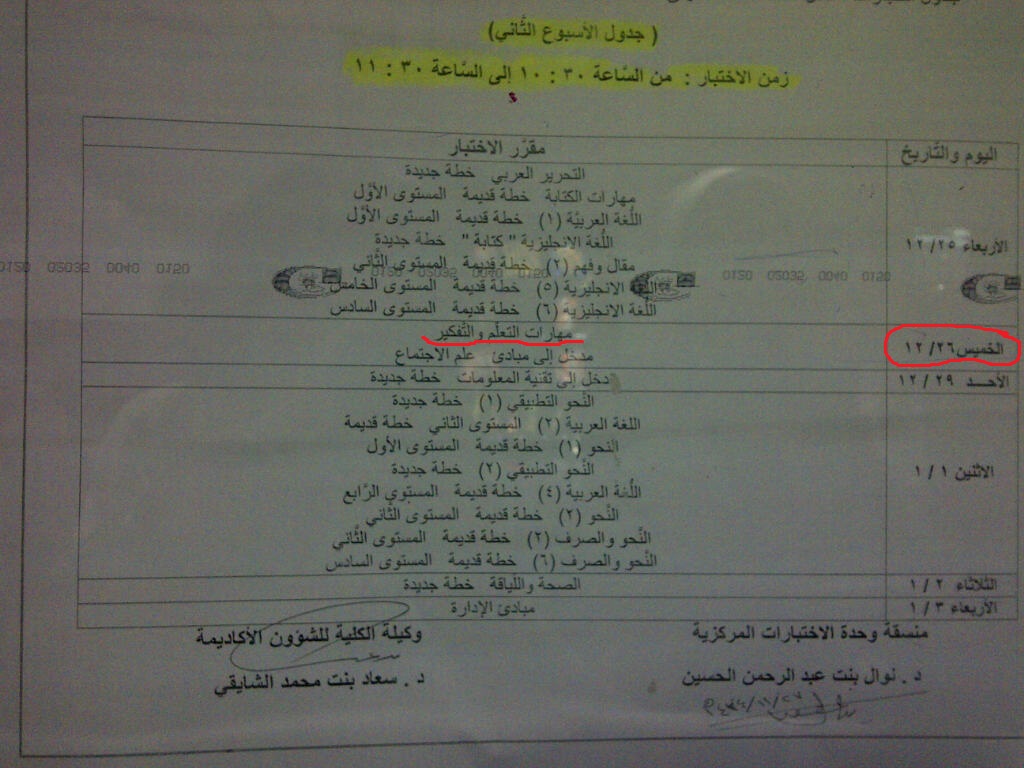 ( جدول الأسبوع الثَّاني)
زمن الاختبار : من السَّاعة ٣٠ : ١٠ إلى السَّاعة ٣٠ : ١١
اليوم والتَّاريخ
مقرَّر الاختبار
الأربعاء ٢٥/ ١٢
التحرير العربي خطة جديدة
مهارات الكتابة خطة قديمة المستوى الأوَّل
اللُّغة العربيَّة (١) خطة قديمة المستوى الأوَّل
اللُّغة الإنجليزية " كتابة " خطة جديدة
مقال وفهم (٢) خطة قديمة المستوى الثَّاني
اللُّغة الانجليزية (٥) خطة قديمة المستوى الخامس
اللُّغة الإنجليزية (٦) خطة قديمة المستوى السادس
0120 02032 0040 0150
الخميس ٢٦/ ١٢
مهارات التعلُّم والتَّفكير
مدخل إلى مبادئ علم الاجتماع
الأحـــد ٢٩ / ١٢
دخل إلى تقنية المعلومات خطة جديدة
الاثنين ١ / ١
النَّحو التطبيقي (١) خطة جديدة
اللغة العربية (٢) المستوى الثاني خطة قديمة
النحو (١) خطة قديمة المستوى الأول
النَّحو التطبيقي (٢) خطة جديدة
اللُّغة العربية (٤) خطة قديمة المستوى الرَّابع
النَّحو (٢) خطة قديمة المستوى الثَّاني
النَّحو والصرف (٢) خطة قديمة المستوى الثَّاني
النَّحو والصرف (٦) خطة قديمة المستوى السادس
الثلاثاء ٢ / ١
الصحة واللياقة خطة جديدة
الأربعاء ٣ / ١
مبادئ الإدارة
منسقة وحدة الاختبارات المركزية
وكيلة الكلية للشؤون الأكاديمة
د . نوال بنت عبد الرحمن الحسين
د . سعاد بنت محمد الشايقي